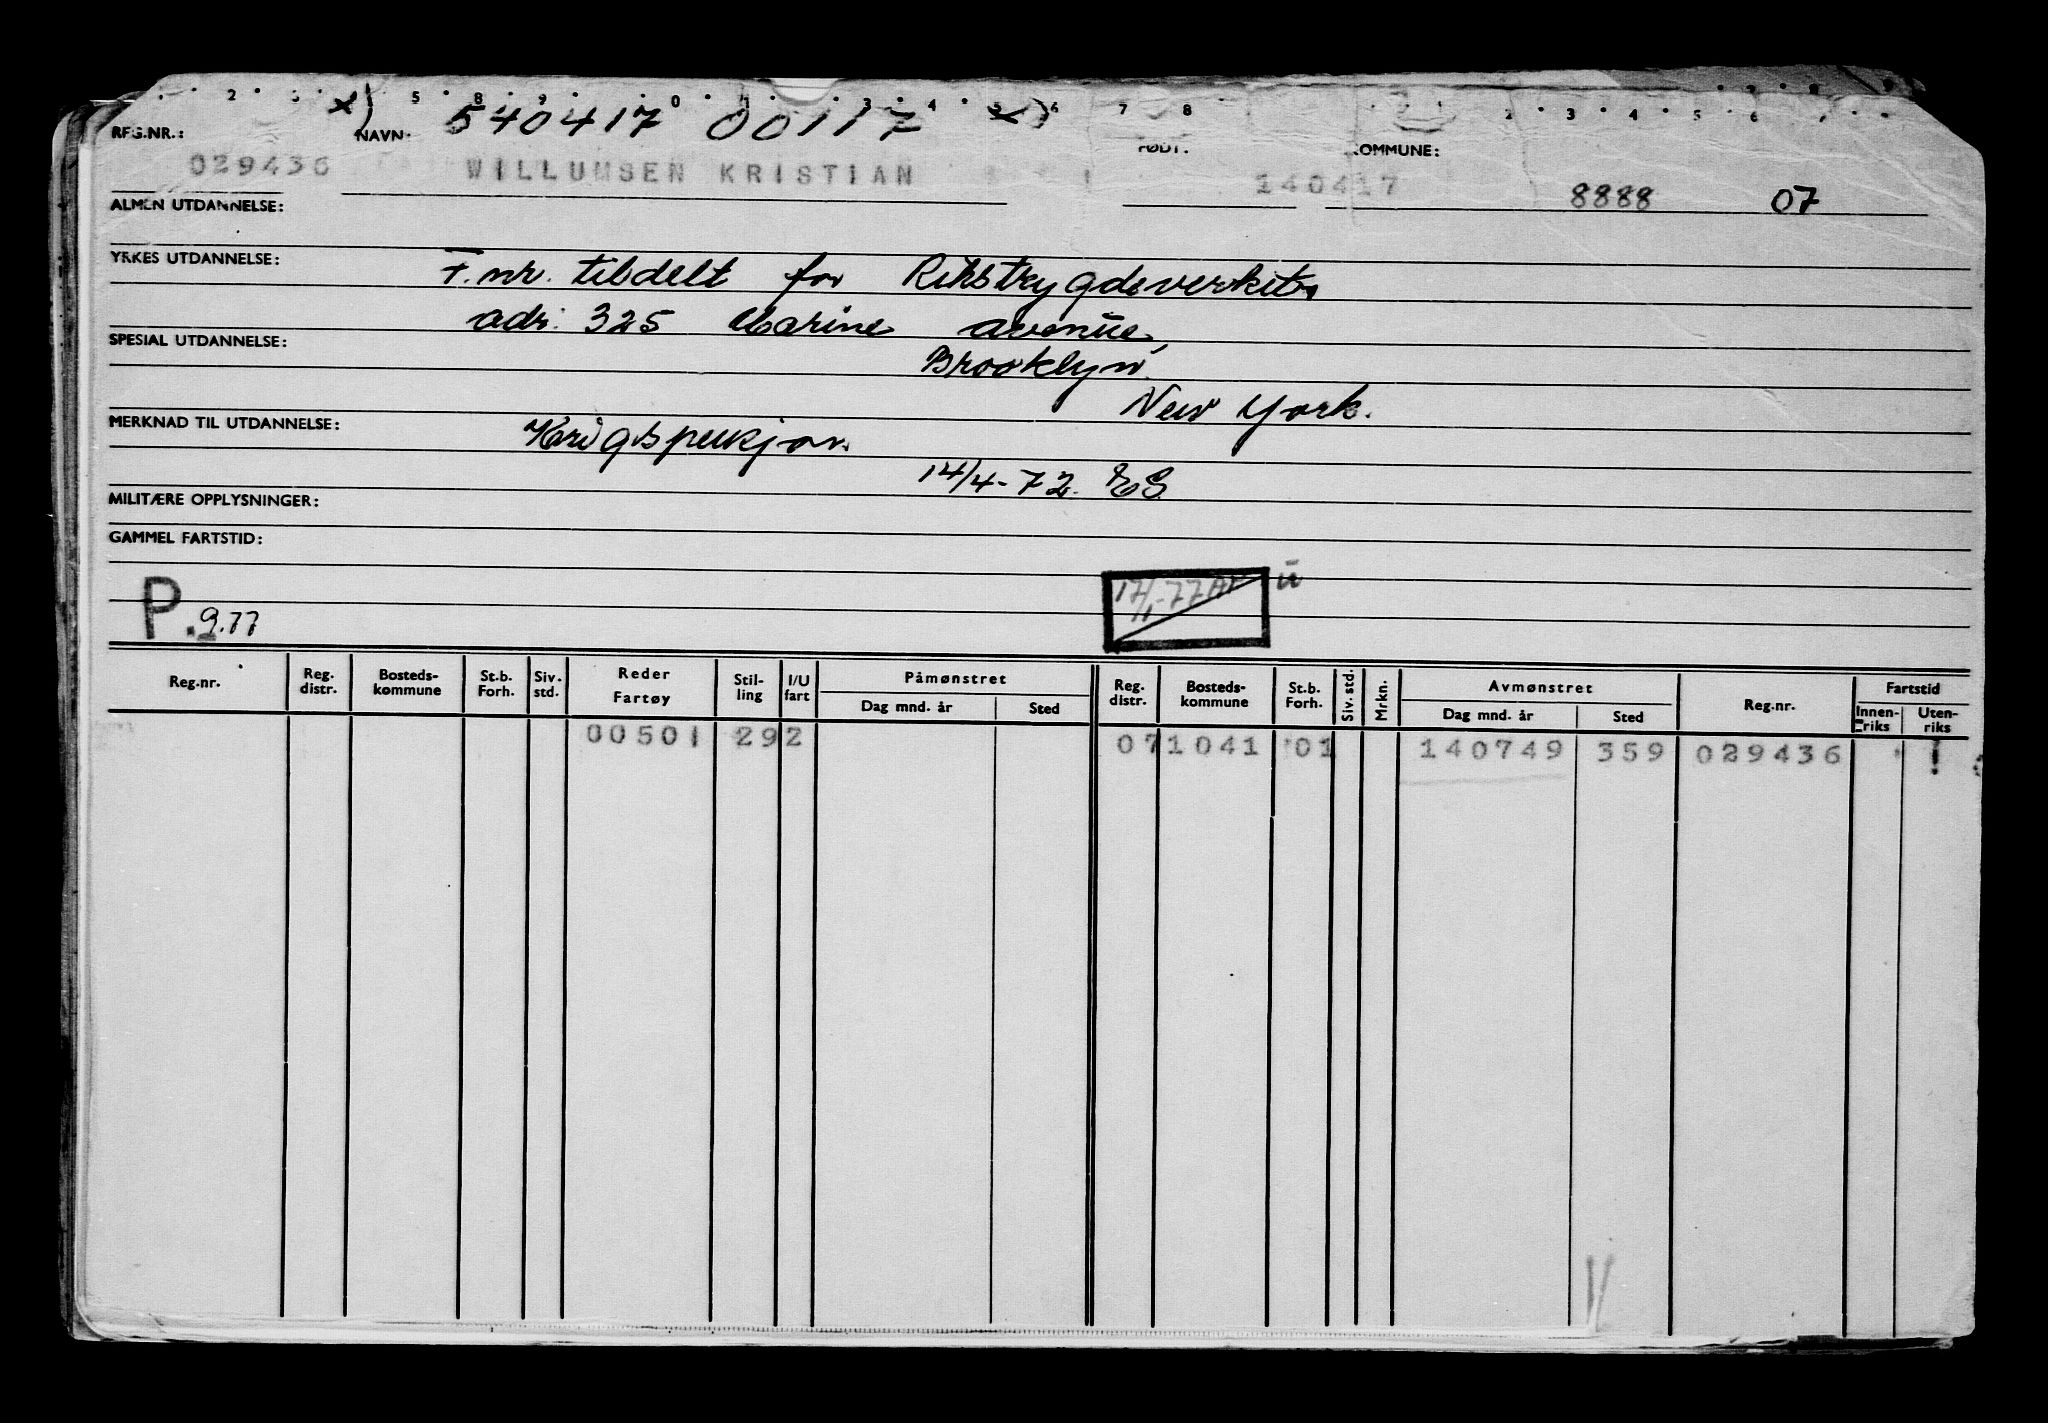 2 5 8 9 0 1 3 4 5 6 7 8 2 3 4 5 6 7 8 9
x) 540417 00117 x)
REG.NR.: NAVN: FØDT: KOMMUNE:
029436 WILLUMSEN KRISTIAN 140417 8888 07
ALMEN UTDANNELSE:
YRKES UTDANNELSE: F.nr. tildelt for Rikstrygdeverket,
adr. 325 Marine avenue,
SPESIAL UTDANNELSE: Brooklyn
New York.
MERKNAD TIL UTDANNELSE: Krigspensjon.
14/4-72. ES
MILITÆRE OPPLYSNINGER:
GAMMEL FARTSTID:
17/1-77 ü
P. 9.77
Reg.nr. Reg. distr. Bosteds- kommune St.b. Forh. Siv. std. Reder Fartøy Stil- ling I/U fart Påmønstret Dag mnd. år Sted Reg. distr. Bosteds- kommune St.b. Forh. Siv. std. Mrkn. Avmønstret Dag mnd. år Sted Reg.nr. Fartstid Innen- riks Uten- riks
00501 292 07 1041 01 140749 359 029436